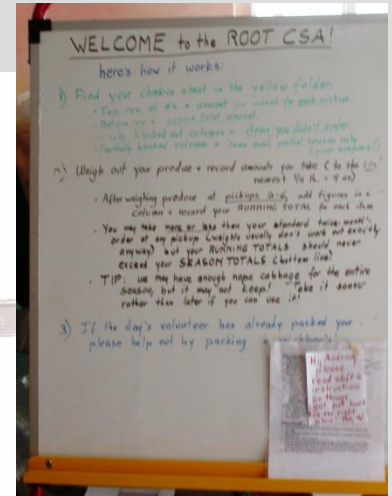 WELCOME to the ROOT CSA!
here's how it works:
1) Find your check-in sheet in the yellow folder.
• Top row of #'s = amount you ordered for each
• Bottom row = season total amount.
blocked out columns = items you didn't order.
• Partially blocked columns = items
2) Weigh out your produce + record amounts you take (to the
nearest 1/4 lb. = 4 oz)
• After weighing produce at pickups 2-6, add figures in a
column + record your RUNNING TOTAL for each item
• You may take more or less than your standard twice-month
order at any pickup (weights usually don't work out exactly
anyway) but your RUNNING TOTALS should never
exceed your SEASON TOTALS (bottom line)
• TIP: we may have enough napa cabbage for the entire
season, but it may not keep! Take it sooner
rather than later if you can use it!
3) If the day's volunteer has already packed your
please help out by packing
please
read
instructions
on things